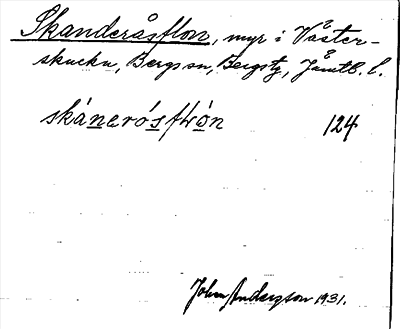 Skanderåsflon, myr i Väster-
skucku, Bergs sn, Bergstg, Jämtl. l.
skánerósflon 124
John Anderzson 1931.